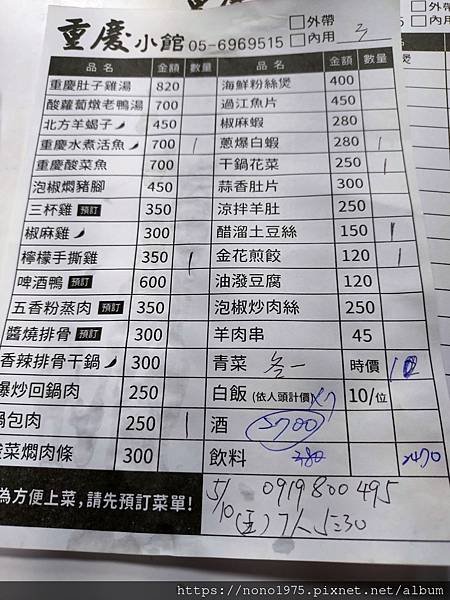 重慶小館 05-6969515 □外帶
□內用 3
品名 金額 數量 品名 金額 數量
重慶肚子雞湯 820 海鮮粉絲煲 400
酸蘿蔔燉老鴨湯 700 過江魚片 450
北方羊蠍子 450 椒麻蝦 280
重慶水煮活魚 700 1 蔥爆白蝦 280 1
重慶酸菜魚 700 干鍋花菜 250 1
泡椒燜豬腳 450 蒜香肚片 300
三杯雞 預訂 350 涼拌羊肚 250
椒麻雞 300 醋溜土豆絲 150 1
檸檬手撕雞 350 1 金花煎餃 120 1
啤酒鴨 預訂 600 油潑豆腐 120
五香粉蒸肉 預訂 350 泡椒炒肉絲 250
醬燒排骨 預訂 300 羊肉串 45
香辣排骨干鍋 300 青菜 時價
爆炒回鍋肉 250 白飯 (依人頭計價) x7 10/位
鍋包肉 250 1 酒 5700
酸菜燜肉條 300 飲料 380
為方便上菜,請先預訂菜單!
5/10 (五) 7人 5:30
0919 800 495
https://nono1975.pixnet.net/album